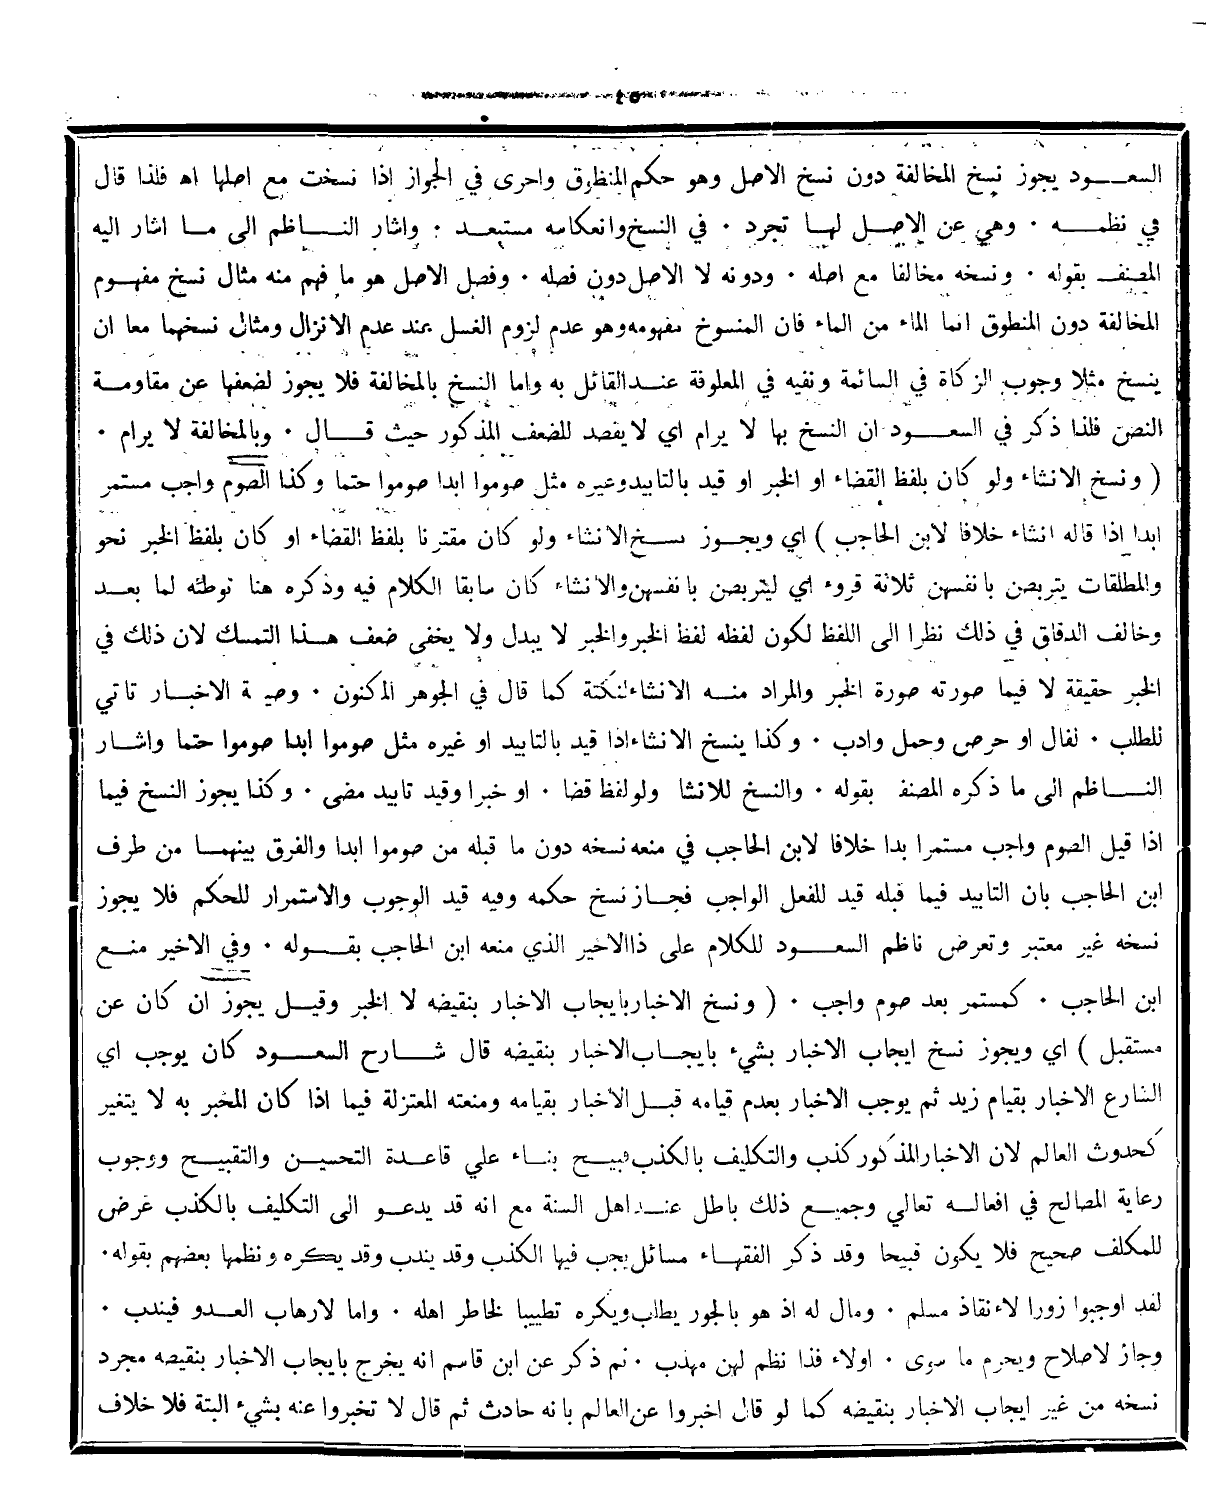 ٤٥
السعود يجوز نسخ المخالفة دون نسخ الاصل وهو حكم المنطوق واحرى في الجواز اذا نسخت مع اصلها اه فلذا قال
في نظمه ٠ وهي عن الاصل لها تجرد ٠ في النسخ وانعكاسه مستبعد ٠ واشار الناظم الى ما اشار اليه
المصنف بقوله ٠ ونسخه مخالفا مع اصله ٠ ودونه لا الاصل دون فصله ٠ وفصل الاصل هو ما فهم منه مثال نسخ مفهوم
المخالفة دون المنطوق انما الماء من الماء فان المنسوخ مفهومه وهو عدم لزوم الغسل عند عدم الانزال ومثال نسخهما معا ان
ينسخ مثلا وجوب الزكاة في السائمة ونفيه في المعلوفة عند القائل به واما النسخ بالمخالفة فلا يجوز لضعفها عن مقاومة
النص فلذا ذكر في السعود ان النسخ بها لا يرام اي لا يقصد للضعف المذكور حيث قال ٠ وبالمخالفة لا يرام ٠
( ونسخ الانشاء ولو كان بلفظ القضاء او الخبر او قيد بالتابيد وغيره مثل صوموا ابدا صوموا حتما وكذا الصوم واجب مستمر
ابدا اذا قاله انشاء خلافا لابن الحاجب ) اي ويجوز نسخ الانشاء ولو كان مقترنا بلفظ القضاء او كان بلفظ الخبر نحو
والمطلقات يتربصن بانفسهن ثلاثة قروء اي ليتربصن بانفسهن والانشاء كان سابقا الكلام فيه وذكره هنا توطئه لما بعد
وخالف الدقاق في ذلك نظرا الى اللفظ لكون لفظه لفظ الخبر والخبر لا يبدل ولا يخفى ضعف هذا التمسك لان ذلك في
الخبر حقيقة لا فيما صورته صورة الخبر والمراد منه الانشاء لنكتة كما قال في الجوهر المكنون ٠ وصيغة الاخبار تاتي
للطلب ٠ لفال او حرص وحمل وادب ٠ وكذا ينسخ الانشاء اذا قيد بالتابيد او غيره مثل صوموا ابدا صوموا حتما واشار
الناظم الى ما ذكره المصنف بقوله ٠ والنسخ للانشا ولو لفظ قضا ٠ او خبرا وقيد تابيد مضى ٠ وكذا يجوز النسخ فيما
اذا قيل الصوم واجب مستمرا بدا خلافا لابن الحاجب في منعه نسخه دون ما قبله من صوموا ابدا والفرق بينهما من طرف
ابن الحاجب بان التابيد فيما قبله قيد للفعل الواجب فجاز نسخ حكمه وفيه قيد الوجوب والاستمرار للحكم فلا يجوز
نسخه غير معتبر وتعرض ناظم السعود للكلام على ذا الاخير الذي منعه ابن الحاجب بقوله ٠ وفي الاخير منع
ابن الحاجب ٠ كمستمر بعد صوم واجب ٠ ( ونسخ الاخبار بايجاب الاخبار بنقيضه لا الخبر وقيل يجوز ان كان عن
مستقبل ) اي ويجوز نسخ ايجاب الاخبار بشيء بايجاب الاخبار بنقيضه قال شارح السعود كان يوجب اي
الشارع الاخبار بقيام زيد ثم يوجب الاخبار بعدم قيامه قبل الاخبار بقيامه ومنعته المعتزلة فيما اذا كان المخبر به لا يتغير
كحدوث العالم لان الاخبار المذكور كذب والتكليف بالكذب قبيح بناء علي قاعدة التحسين والتقبيح ووجوب
رعاية المصالح في افعاله تعالي وجميع ذلك باطل عند اهل السنة مع انه قد يدعو الى التكليف بالكذب غرض
للمكلف صحيح فلا يكون قبيحا وقد ذكر الفقهاء مسائل يجب فيها الكذب وقد يندب وقد يكره ونظمها بعضهم بقوله ٠
لقد اوجبوا زورا لاءنقاذ مسلم ٠ ومال له اذ هو بالجور يطلب ويكره تطييبا لخاطر اهله ٠ واما لارهاب العدو فيندب ٠
وجاز لاصلاح ويحرم ما سوى ٠ اولاء فذا نظم لهن مهذب ٠ ثم ذكر عن ابن قاسم انه يخرج بايجاب الاخبار بنقيضه مجرد
نسخه من غير ايجاب الاخبار بنقيضه كما لو قال اخبروا عن العالم بانه حادث ثم قال لا تخبروا عنه بشيء البتة فلا خلاف